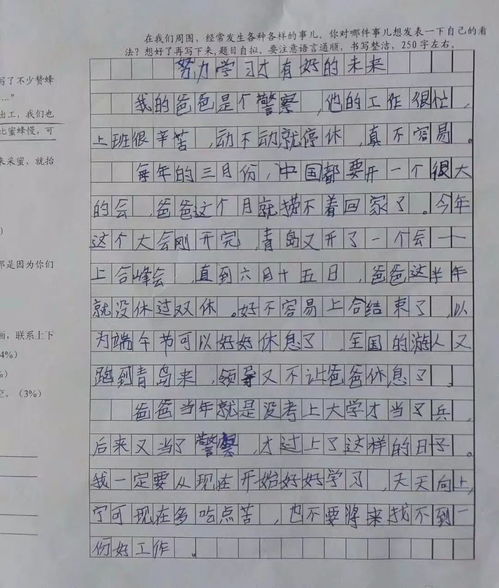 在我们周围，经常发生各种各样的事儿。你对哪件事儿想发表一下自己的看
法？想好了再写下来，题目自拟。要注意语言通顺，书写整洁，250字左右。
努力学习才有好的未来
我的爸爸是个警察，他的工作很忙，
上班很辛苦，动不动就停休，真不容易。
每年的三月份，中国都要开一个很大
的会，爸爸这个月就捞不着回家了。今年
这个大会刚开完，青岛又开了一个会——
上合峰会，直到六月十五日，爸爸这半年
就没休过双休。好不容易上合结束了，以
为端午节可以好好休息了，全国的游人又
跑到青岛来，领导又不让爸爸休息了。
爸爸当年就是没考上大学才当了兵，
后来又当了警察，才过上了这样的日子。
我一定要从现在开始好好学习，天天向上，
宁可现在多吃点苦，也不要将来找不到一
份好工作。
写了不少赞蜂
出工，我们也
比蜜蜂慢，可
来采蜜，就抬
那是因为你们
画，联系上下
4%）
（3%）